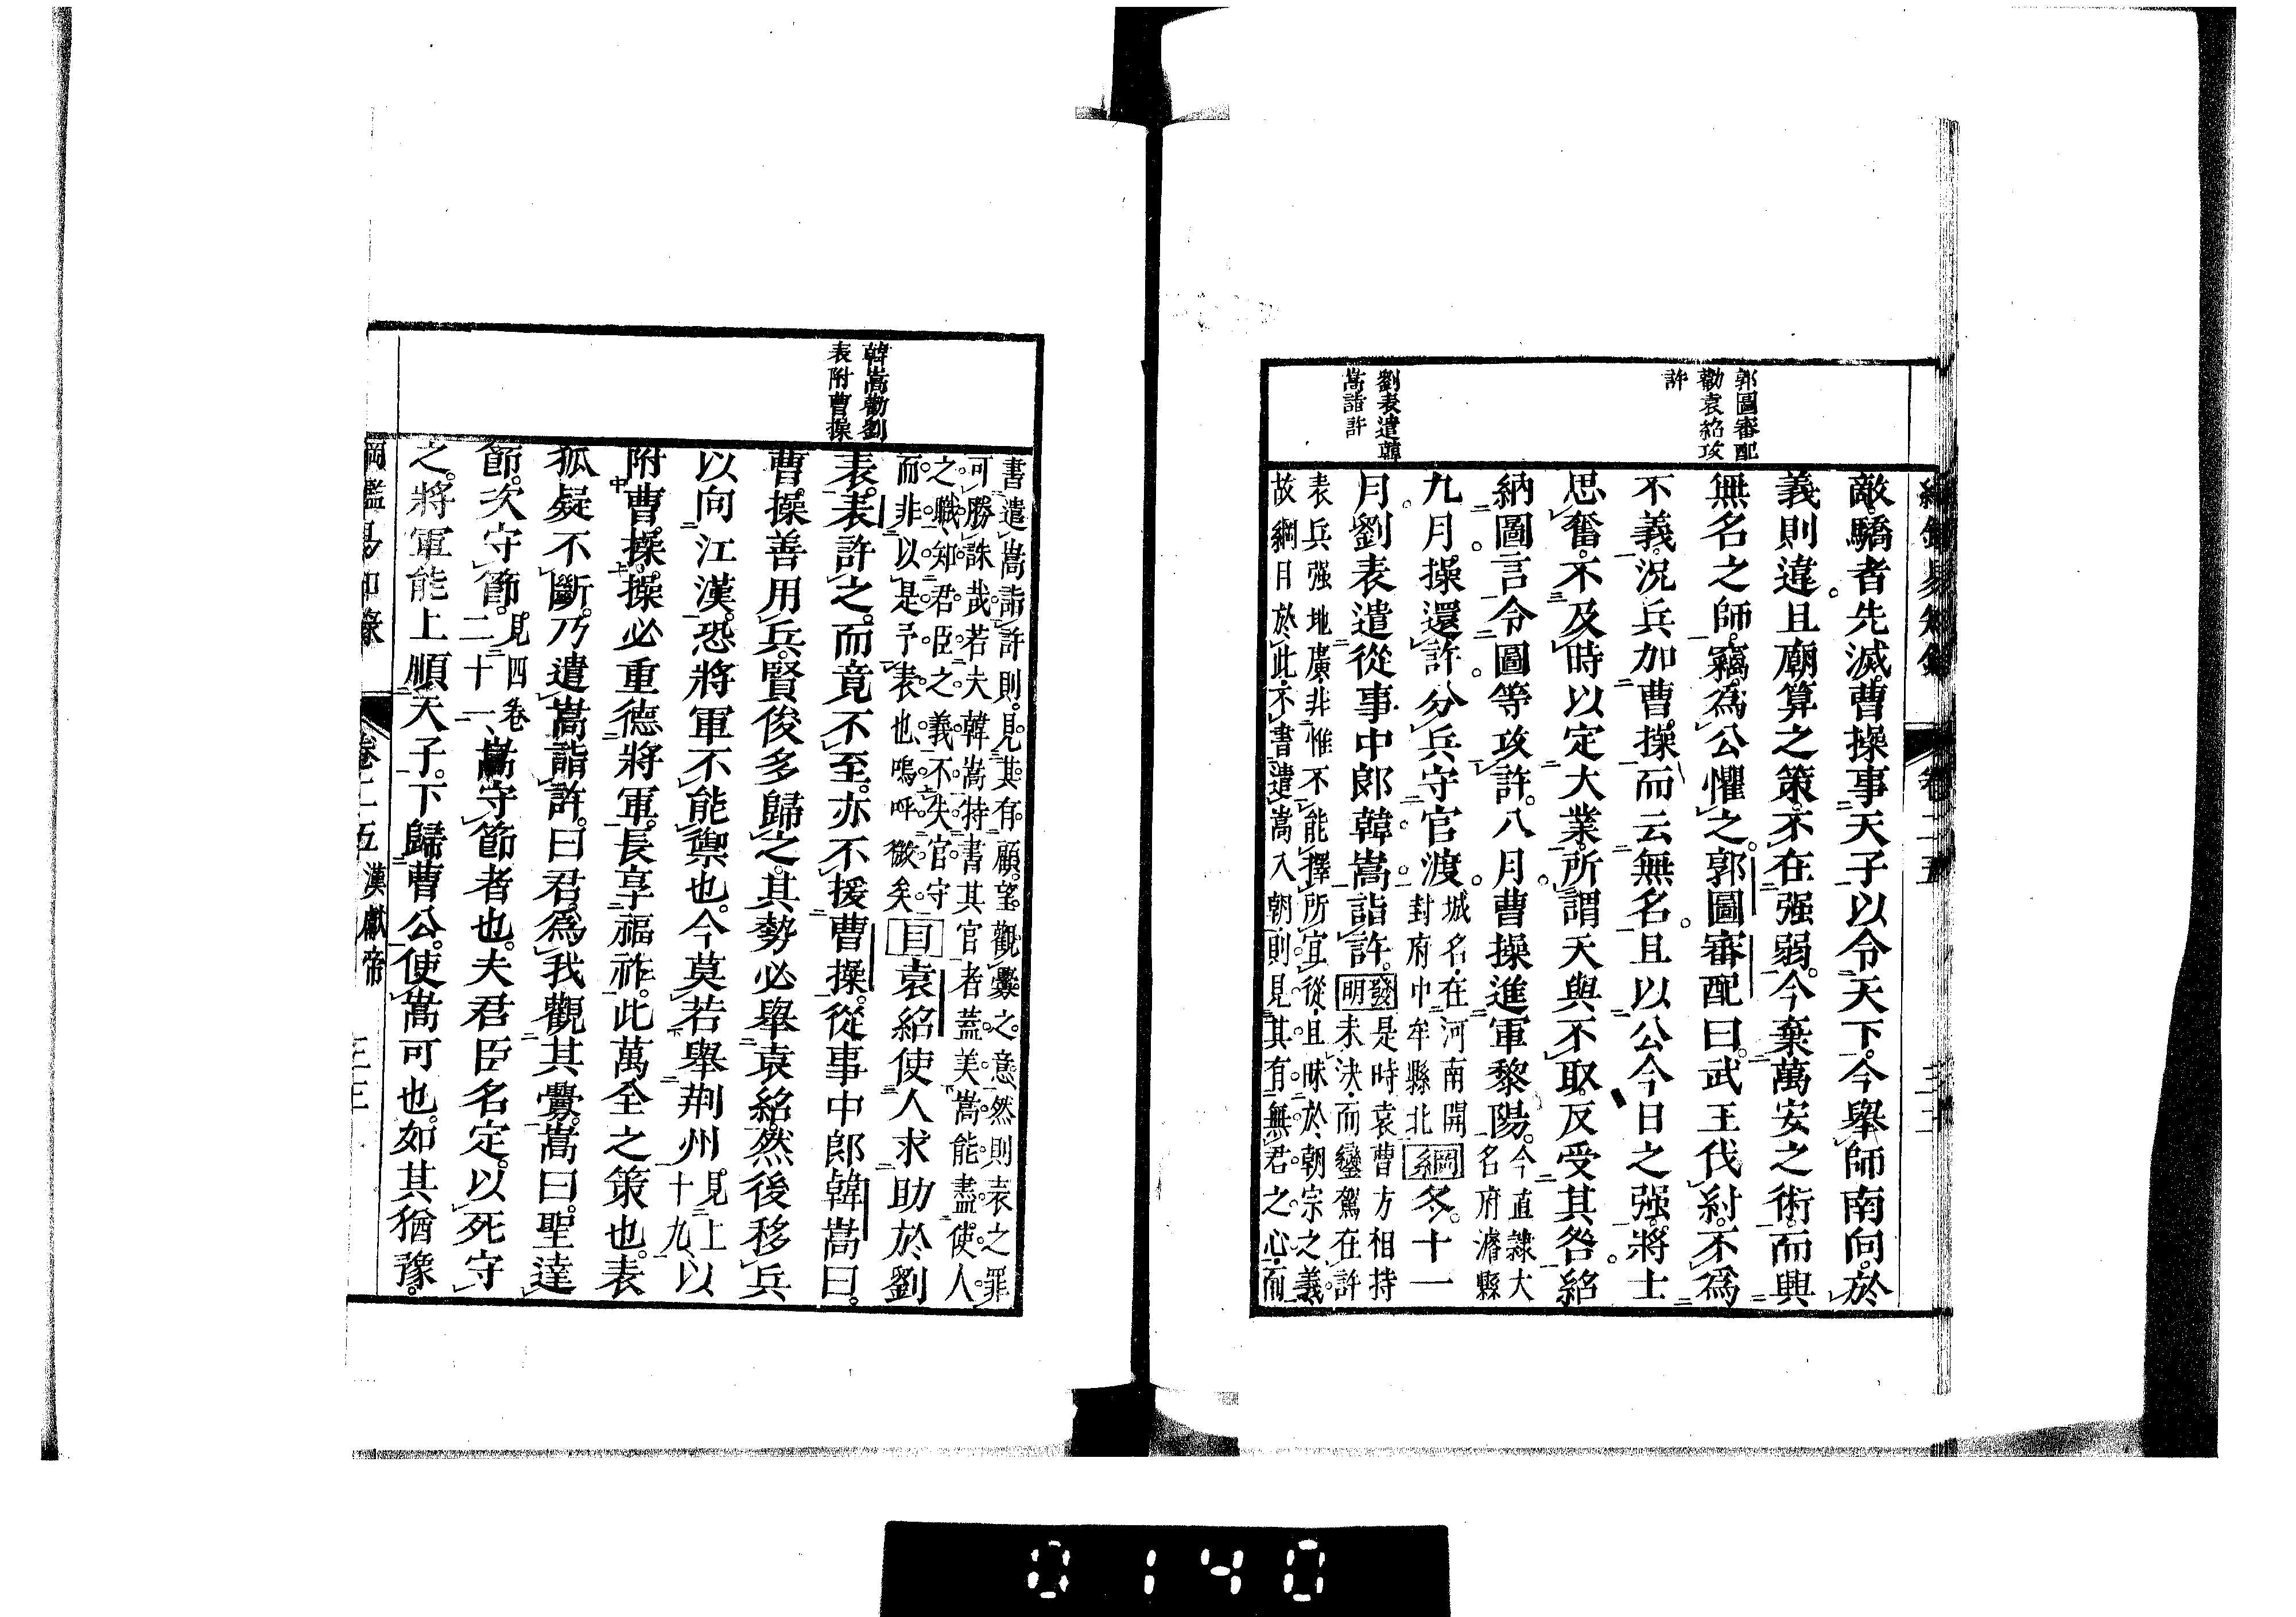 綱鑑易知錄 卷二五
郭圖審配
勸袁紹攻
許
劉表遣韓
嵩詣許
敵驕者先滅曹操事天子以令天下今舉師南向於
義則違且廟算之策不在强弱今棄萬安之術而興
無名之師竊爲公懼之郭圖審配曰武王伐紂不爲
不義況兵加曹操而云無名且以公今日之强將士
思奮不及時以定大業所謂天與不取反受其咎紹
納圖言令圖等攻許八月曹操進軍黎陽今直隸大
名府濬縣
九月操還許分兵守官渡城名在河南開
封府中牟縣北綱冬十一
月劉表遣從事中郎韓嵩詣許發明是時袁曹方相持
未決而鑾駕在許
表兵强地廣非惟不能擇所宜從且昧於朝宗之義
故綱目於此不書遣嵩入朝則見其有無君之心而
韓嵩勸劉
表附曹操
書遣嵩詣許則見其有顧望觀釁之意然則表之罪
可勝誅哉若夫韓嵩持書其官者蓋美嵩能盡使人
之職知君臣之義不失官守
而非以是予表也嗚呼微矣目袁紹使人求助於劉
表表許之而竟不至亦不援曹操從事中郎韓嵩曰
曹操善用兵賢俊多歸之其勢必舉袁紹然後移兵
以向江漢恐將軍不能禦也今莫若舉荆州見上
十九以以
附曹操操必重德將軍長享福祚此萬全之策也表
狐疑不斷乃遣嵩詣許曰君爲我觀其釁嵩曰聖達
節次守節見四卷
二十一嵩守節者也夫君臣名定以死守
之將軍能上順天子下歸曹公使嵩可也如其猶豫
綱鑑易知錄 卷二五 漢獻帝
0140